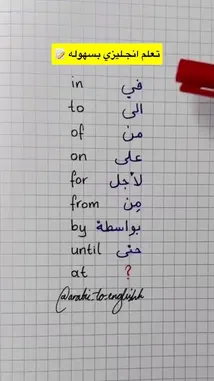 تعلم انجليزي بسهوله
in في
to الى
of من
on على
for لأجل
from مِن
by بواسطة
until حتى
at ?
@arabic_to_englishh